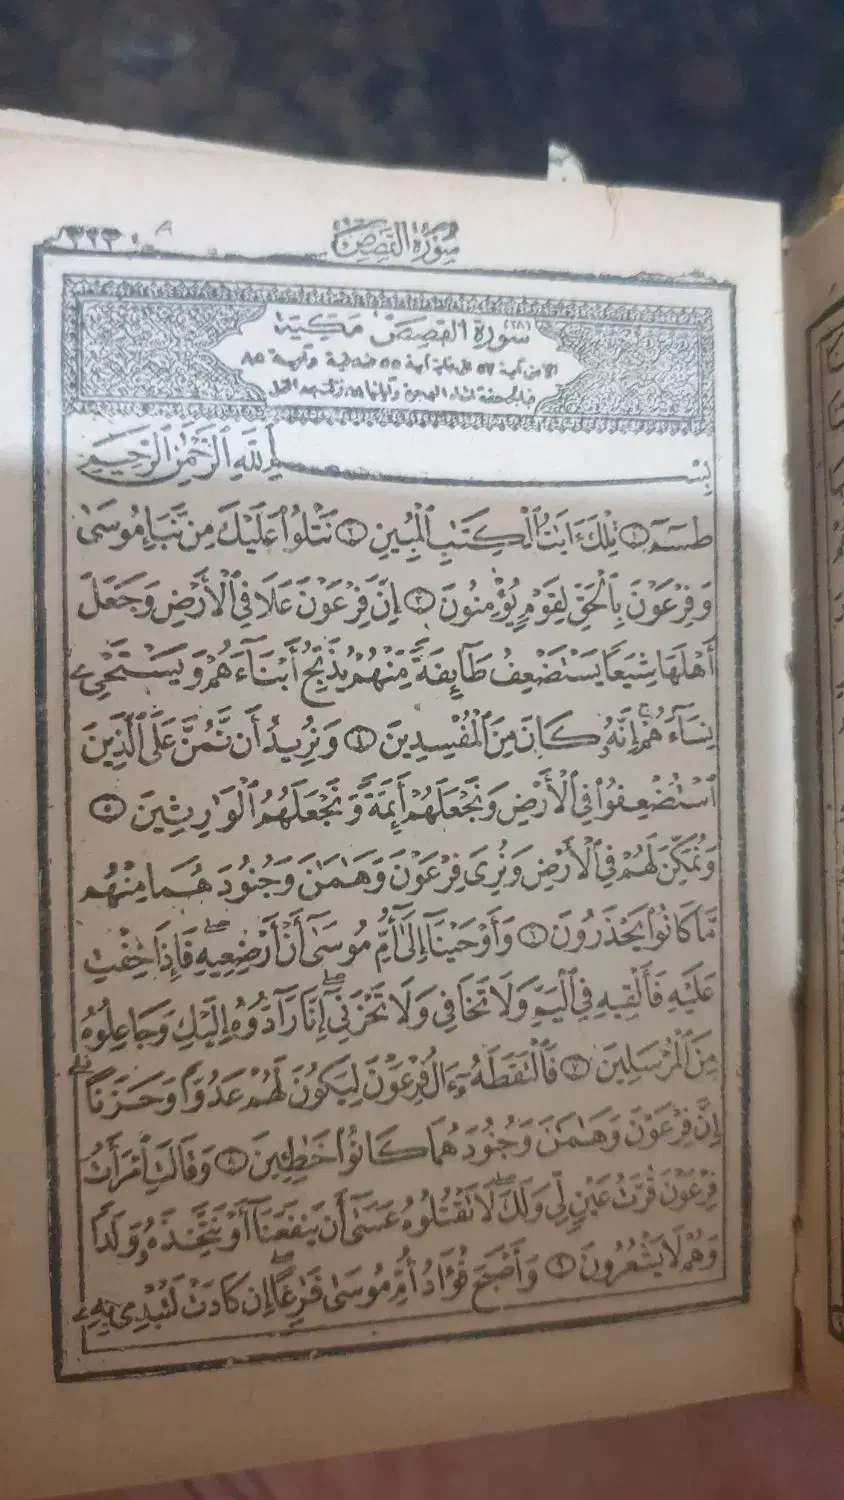 سُورَةُ القَصَصِ ٣٢٣
(٢٨) سورة القصص مكية
الا من آية ٥٢ الى غاية آية ٥٥ فمدنية وآية ٨٥
فبالجحفة اثناء الهجرة وآياتها ٨٨ نزلت بعد النمل
بِسْمِ ٱللَّهِ ٱلرَّحْمَٰنِ ٱلرَّحِيمِ
طسٓمٓ ١ تِلْكَ ءَايَٰتُ ٱلْكِتَٰبِ ٱلْمُبِينِ ٢ نَتْلُوا۟ عَلَيْكَ مِن نَّبَإِ مُوسَىٰ
وَفِرْعَوْنَ بِٱلْحَقِّ لِقَوْمٍ يُؤْمِنُونَ ٣ إِنَّ فِرْعَوْنَ عَلَا فِى ٱلْأَرْضِ وَجَعَلَ
أَهْلَهَا شِيَعًا يَسْتَضْعِفُ طَآئِفَةً مِّنْهُمْ يُذَبِّحُ أَبْنَآءَهُمْ وَيَسْتَحْىِۦ
نِسَآءَهُمْ ۚ إِنَّهُۥ كَانَ مِنَ ٱلْمُفْسِدِينَ ٤ وَنُرِيدُ أَن نَّمُنَّ عَلَى ٱلَّذِينَ
ٱسْتُضْعِفُوا۟ فِى ٱلْأَرْضِ وَنَجْعَلَهُمْ أَئِمَّةً وَنَجْعَلَهُمُ ٱلْوَٰرِثِينَ ٥
وَنُمَكِّنَ لَهُمْ فِى ٱلْأَرْضِ وَنُرِىَ فِرْعَوْنَ وَهَٰمَٰنَ وَجُنُودَهُمَا مِنْهُم
مَّا كَانُوا۟ يَحْذَرُونَ ٦ وَأَوْحَيْنَآ إِلَىٰٓ أُمِّ مُوسَىٰٓ أَنْ أَرْضِعِيهِ ۖ فَإِذَا خِفْتِ
عَلَيْهِ فَأَلْقِيهِ فِى ٱلْيَمِّ وَلَا تَخَافِى وَلَا تَحْزَنِىٓ ۖ إِنَّا رَآدُّوهُ إِلَيْكِ وَجَاعِلُوهُ
مِنَ ٱلْمُرْسَلِينَ ٧ فَٱلْتَقَطَهُۥٓ ءَالُ فِرْعَوْنَ لِيَكُونَ لَهُمْ عَدُوًّا وَحَزَنًا ۗ
إِنَّ فِرْعَوْنَ وَهَٰمَٰنَ وَجُنُودَهُمَا كَانُوا۟ خَٰطِـِٔينَ ٨ وَقَالَتِ ٱمْرَأَتُ
فِرْعَوْنَ قُرَّتُ عَيْنٍ لِّى وَلَكَ ۖ لَا تَقْتُلُوهُ عَسَىٰٓ أَن يَنفَعَنَآ أَوْ نَتَّخِذَهُۥ وَلَدًا
وَهُمْ لَا يَشْعُرُونَ ٩ وَأَصْبَحَ فُؤَادُ أُمِّ مُوسَىٰ فَٰرِغًا ۖ إِن كَادَتْ لَتُبْدِى بِهِۦ